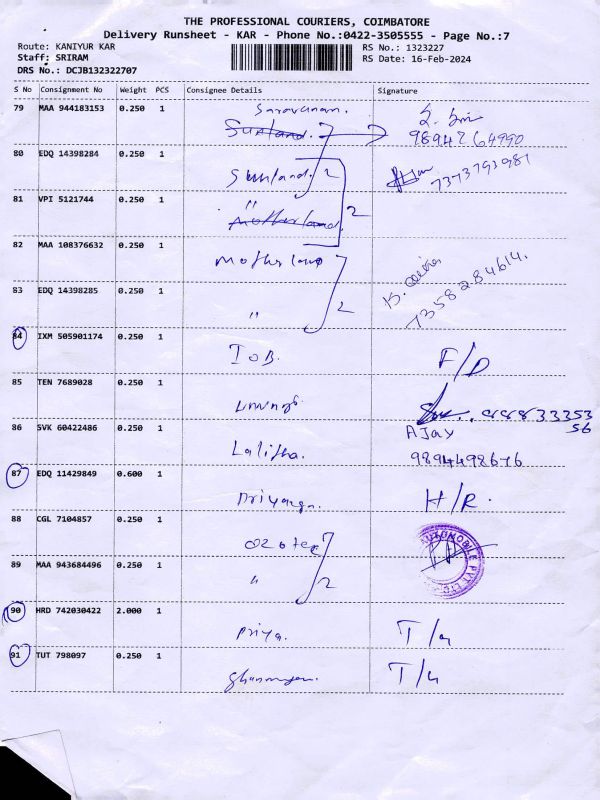 THE PROFESSIONAL COURIERS, COIMBATORE
Delivery Runsheet - KAR - Phone No.:0422-3505555 - Page No.:7
Route: KANIYUR KAR
RS No.: 1323227
Staff: SRIRAM
RS Date: 16-Feb-2024
DRS No.: DCJB132322707
S No Consignment No Weight PCS Consignee Details Signature
79 MAA 944183153 0.250 1 Saravanan.
Sunland.
80 EDQ 14398284 0.250 1
Sunland. 2
81 VPI 5121744 0.250 1 "
Motherland 2
82 MAA 108376632 0.250 1
Motherland
83 EDQ 14398285 0.250 1
" 2
7358284614.
84 IXM 505901174 0.250 1
IOB. F/D
85 TEN 7689028 0.250 1
86 SVK 60422486 0.250 1 AJay
Lalitha. 9894498676
87 EDQ 11429849 0.600 1
Priyanga. H/R.
88 CGL 7104857 0.250 1
AUTOMOBILE PVT LTD
89 MAA 943684496 0.250 1
" 2
90 HRD 742030422 2.000 1
Priya.
91 TUT 798097 0.250 1